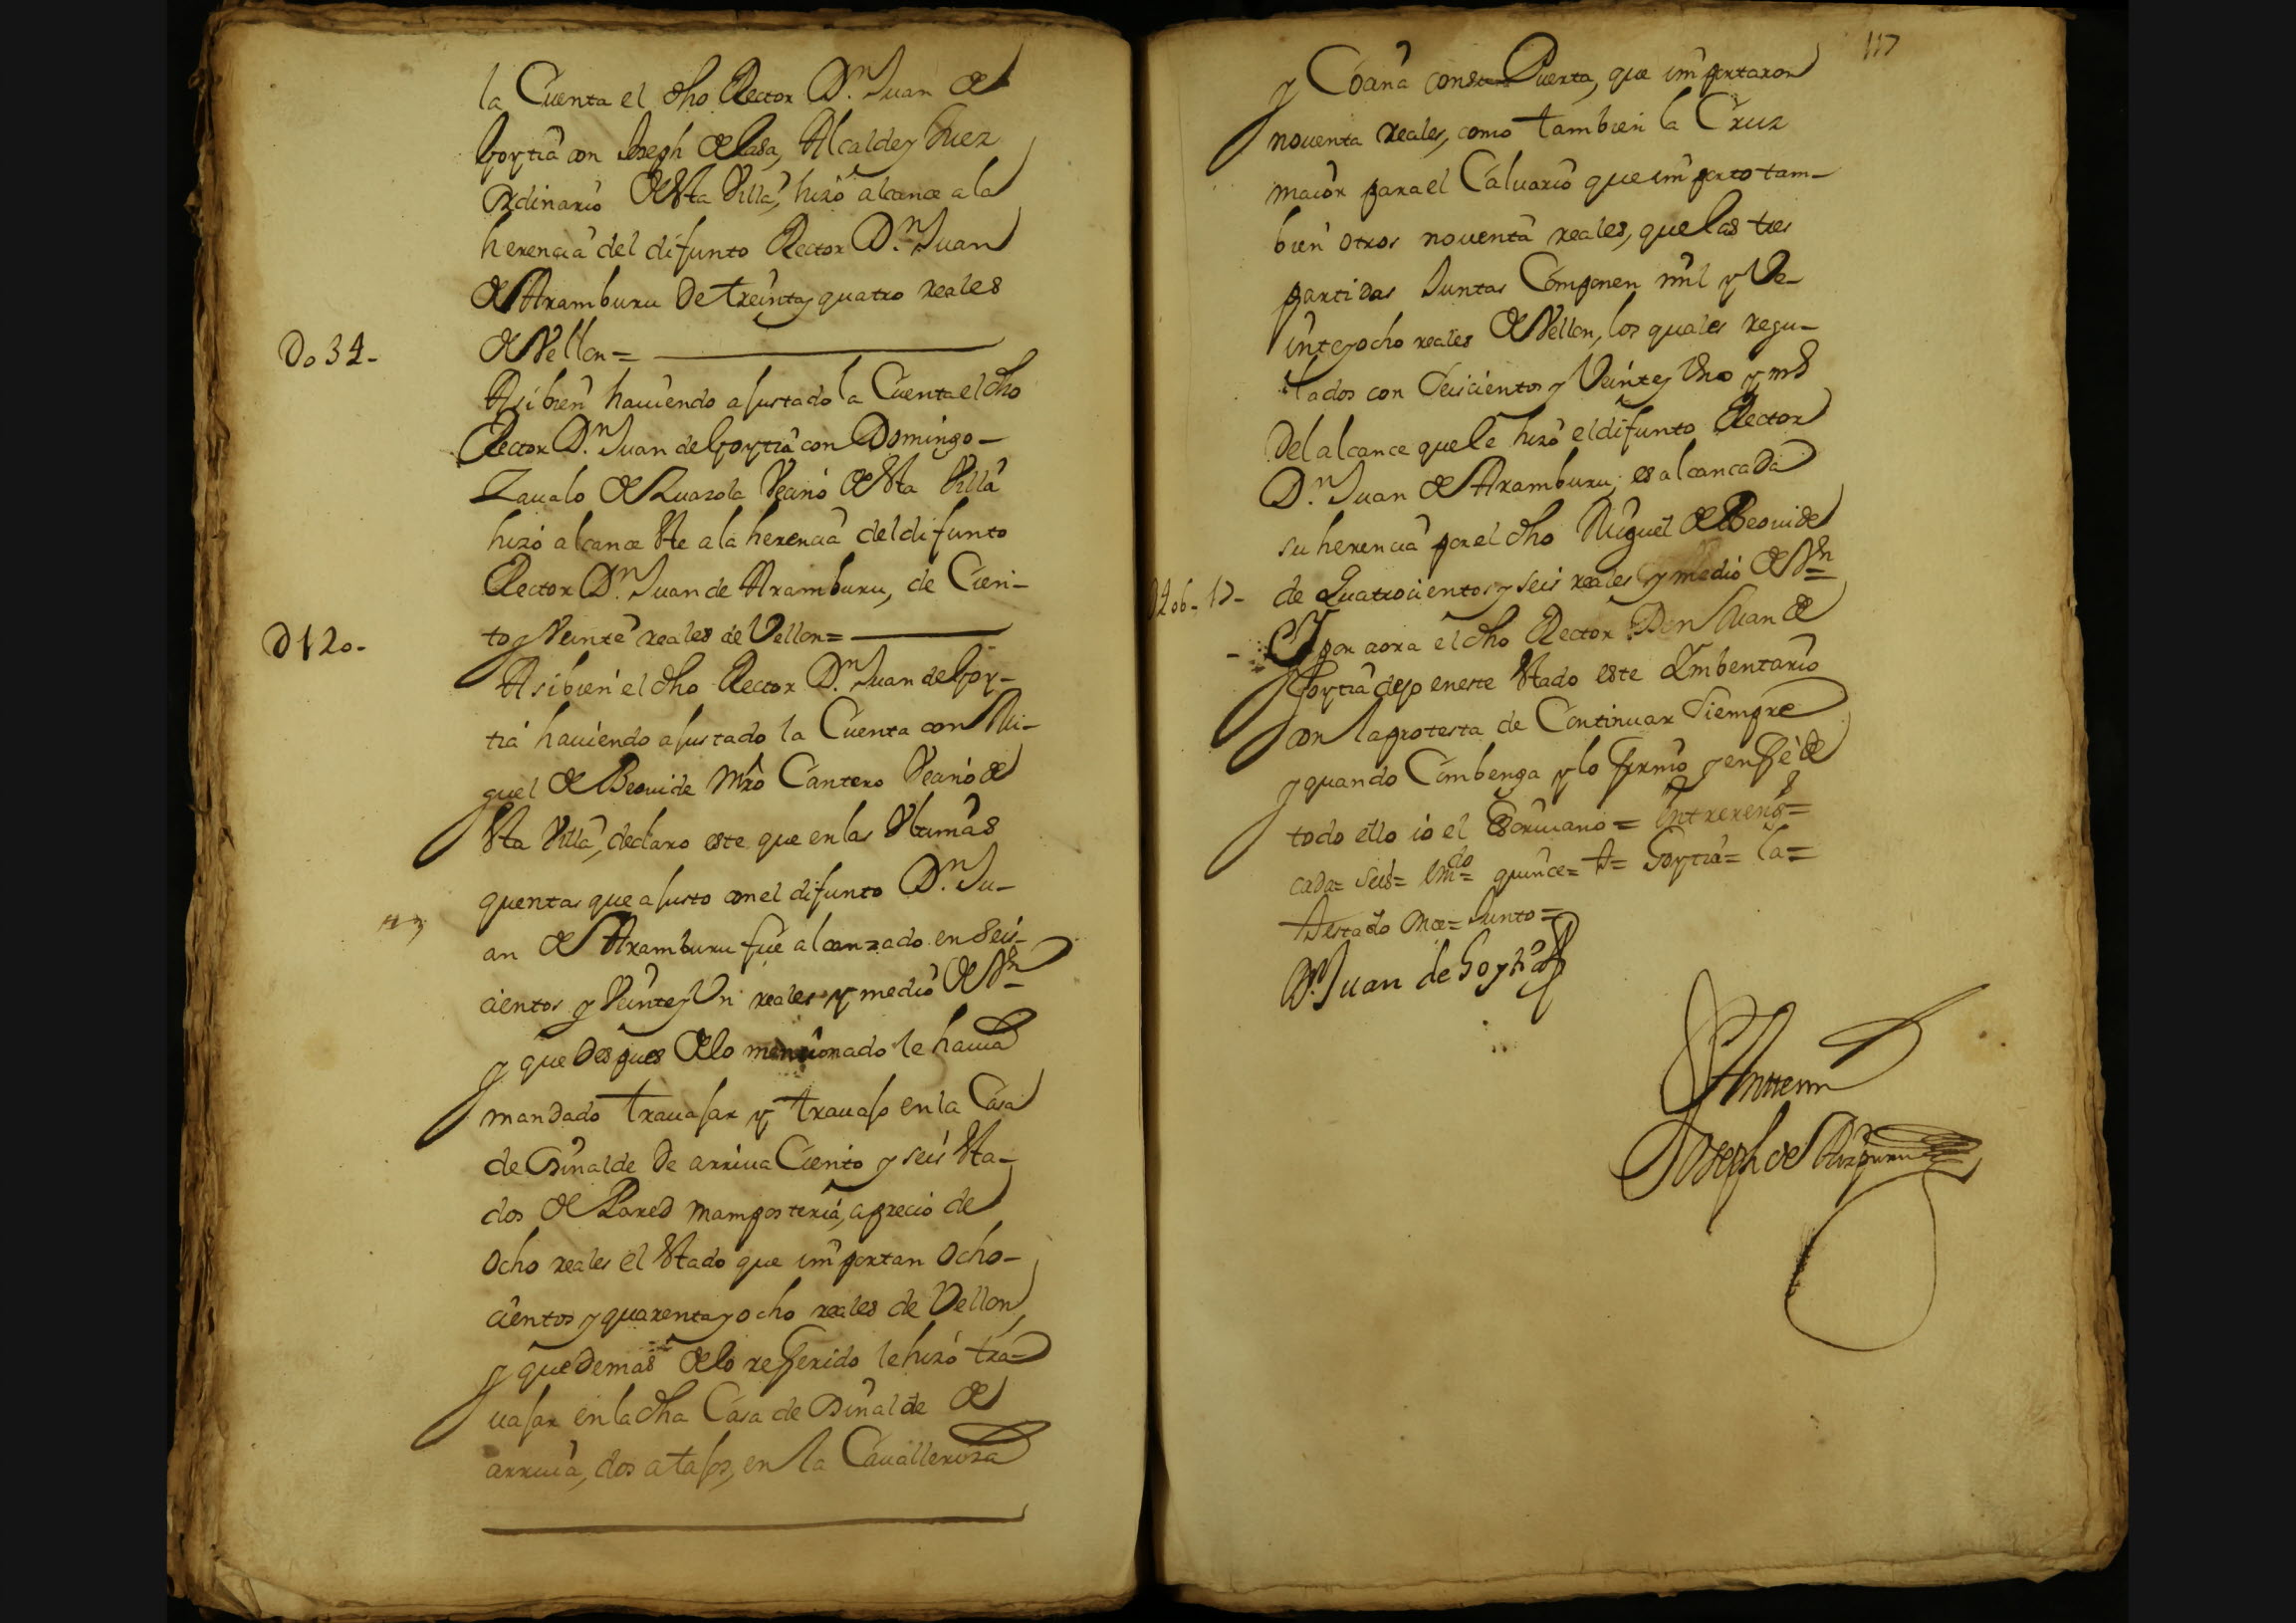 la Cuenta el dho Rector Dn. Juan de
Goytia con Joseph de Lasa, Alcalde y Juez
Ordinario desta Villa, hizo alcance a la
herencia del difunto Rector Dn. Juan
de Aramburu de treinta y quatro reales
Do34-
de Vellon=
Asibien hauiendo ajustado la Cuenta el dho
Rector Dn. Juan de Goytia con Domingo
Zaualo de Vezino desta Villa
hizo alcance este a la herencia del difunto
Rector Dn. Juan de Aramburu, de Cien-
D120-
to y Veinte reales de Vellon=
Asibien el dho Rector Dn. Juan de Goy-
tia hauiendo ajustado la Cuenta con Mi-
guel de Beouide Mro Cantero Vezino de
esta Villa, declaro este que en las Vltimas
quentas que ajusto con el difunto Dn. Ju-
an de Aramburu fue alcanzado en Seis-
cientos y Veinte y Un reales y medio de Vn
y que despues de lo mencionado le hauia
mandado trauajar y trauajo en la Casa
de de arriua Ciento y seis esta-
dos de Pared mamposteria, a precio de
ocho reales el estado que importan ocho-
cientos y quarenta y ocho reales de Vellon,
y que demas de lo referido le hizo tra-
uajar en la dha Casa de de
arriua, dos atajos, en la Caualleriza
117
y con Puerta, que importaron
nouenta reales, como tambien la Cruz
maior para el Caluario que importo tam-
bien otros nouenta reales, que las tres
partidas Juntas Componen mil y Ve-
inte y ocho reales de Vellon, los quales regu-
lados con Seiscientos y Veinte y Uno y mo
del alcance que le hizo el difunto Rector
Dn. Juan de Aramburu; es alcancada
su herencia por el dho Miguel de Beouide
D406-17-
de Quatrocientos y seis reales y medio de Vn=
- Y por aora el dho Rector Don Juan de
Goytia dejo en este estado este Imbentario
con la protesta de Continuar Siempre
y quando Combenga y lo firmo y en fe de
todo ello io el Escriuano = Entrereng=
cada= seis= Emdo= quince= A= Goytia= la=
Testado Once= Junto=
Dn. Juan de Goytia
Antemi
Joseph de Aizpuru